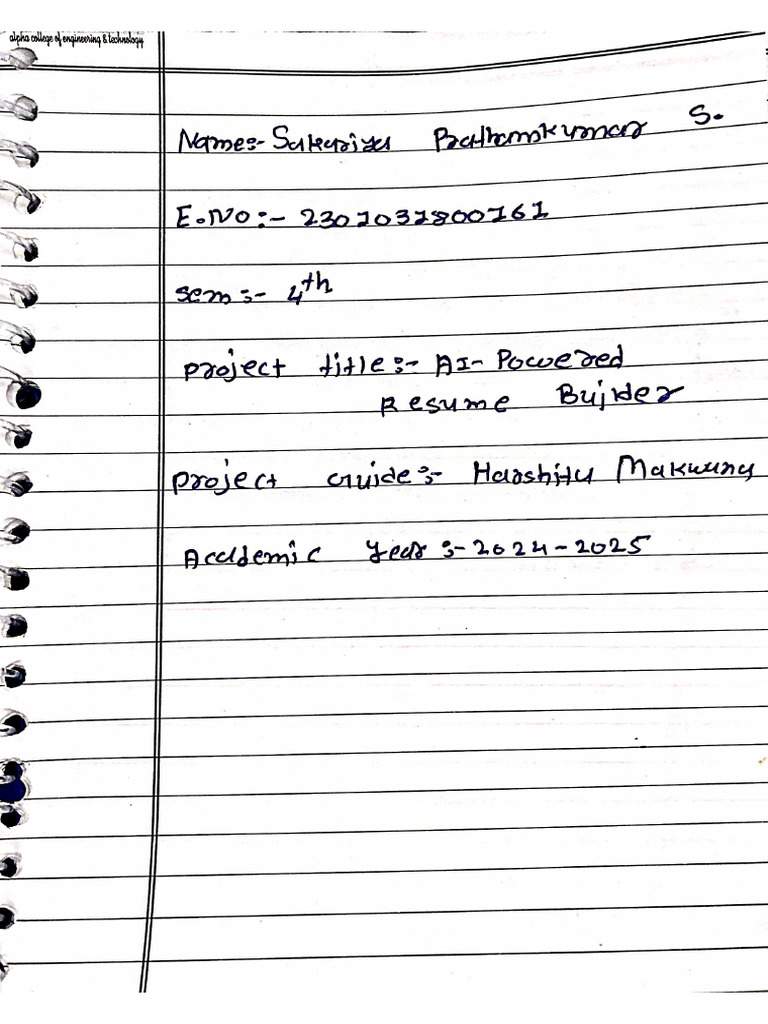 alpha college of engineering & technology
Name:- Sakariya Prathamkumar S.
E.No :- 2301031800161
sem :- 4th
project title :- AI-Powered
Resume Builder
project Guide :- Harshita Makwana
Academic Year :- 2024-2025